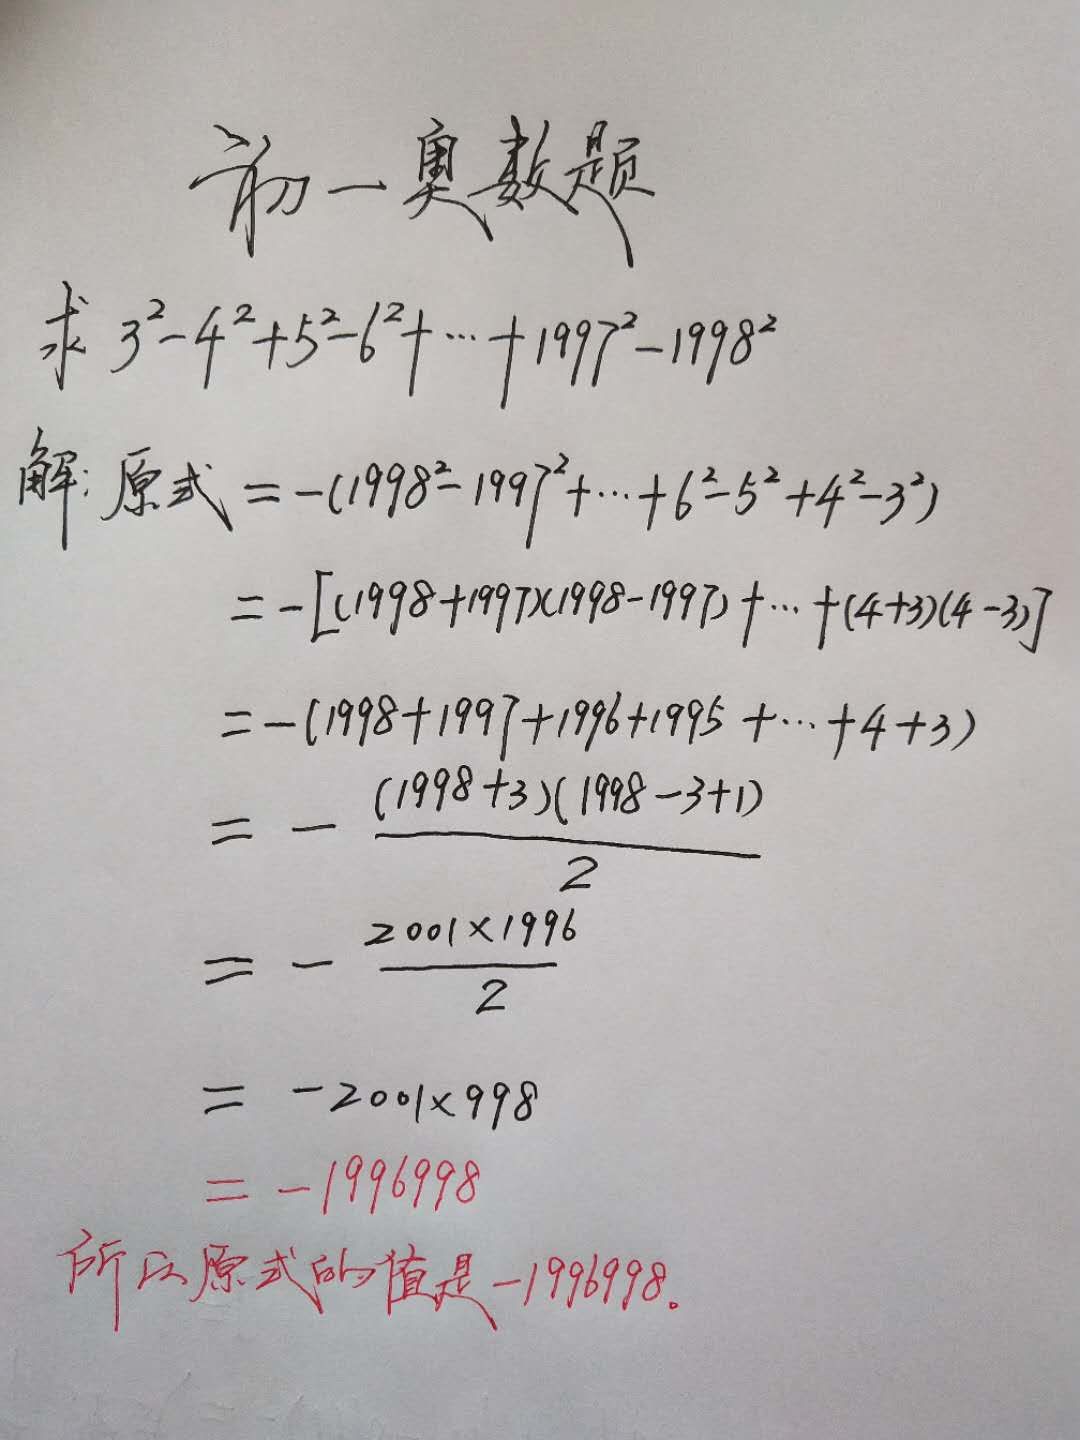 初一奥数题
求 3²-4²+5²-6²+…+1997²-1998²
解:原式=-(1998²-1997²+…+6²-5²+4²-3²)
=-[(1998+1997)(1998-1997)+…+(4+3)(4-3)]
=-(1998+1997+1996+1995+…+4+3)
=-(1998+3)(1998-3+1)/2
=-2001×1996/2
=-2001×998
=-1996998
所以原式的值是-1996998。